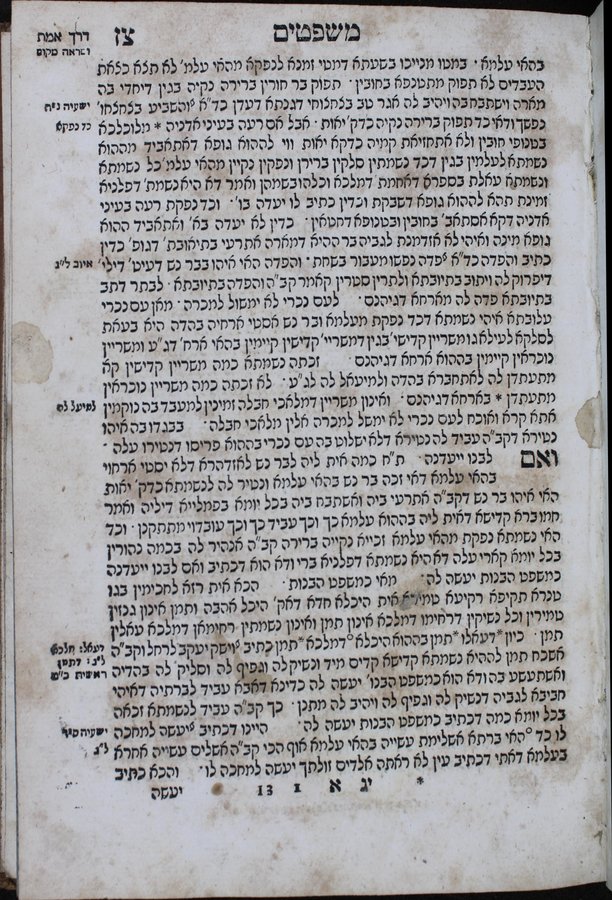 דרך אמת צז משפטים
ומראה מקום
בהאי עלמא · במטו מנייכו בשעתא דמטי זמנא לנפקא מהאי עלמ' לא תצא כצאת
העבדים לא תפוק מתטנפא בחובין · תפוק בר חורין ברירה נקיה בגין דיחדי בה
מארה וישתבח בה ויהיב לה אגר טב בצחצוחי דגנתא דעדן כד"א והשביע בצחצחו'
נפשך ודאי כד תפוק ברירה נקיה כדק' יאות · אבל אם רעה בעיני אדניה * מלוכלכא
בטנופי חובין ולא אתחזיאת קמיה כדקא יאות ווי לההוא גופא דאתאביד מההוא
נשמתא לעלמין בגין דכד נשמתין סלקין ברירן ונפקין נקיין מהאי עלמ' כל נשמתא
ונשמתא עאלת בספרא דאחמת דמלכא וכלהו בשמהן ואמר דא היא נשמת' דפלניא
זמינת תהא לההוא גופא דשבקת וכדין כתיב לו יעדה בו' · וכד נפקת רעה בעיני
אדניה דקא אסתאב' בחובין ובטנופא דחטאין · כדין לא יעדה בא' ואתאביד ההוא
גופא מינה ואיהי לא אזדמנת לגביה בר ההיא דמארה אתרעי בתיאובת' דגופ' כדין
כתיב והפדה כד"א פדה נפשו מעבור בשחת · והפדה האי איהו בבר נש דעיט' דילי'
דיפרוק לה ויתוב בתיובתא ולתרין סטרין קאמר קב"ה והפדה בתיובתא · לבתר דתב
בתיובתא פדה לה מארחא דגיהנם · לעם נכרי לא ימשול למכרה · מאן עם נכרי
עלובתא איהי נשמתא דכד נפקת מעלמא ובר נש אסטי ארחיה בהדה היא בעאת
לסלקא לעילא גו משריין קדישי' בגין דמשריי' קדישין קיימין בהאי ארח' דג"ע ומשריין
נוכראין קיימין בההוא ארחא דגיהנם · זכתה נשמתא כמה משריין קדישין קא
מתעתדן לה לאתחברא בהדה ולמיעאל לה לג"ע · לא זכתה כמה משריין נוכראין
מתעתדן * בארחא דגיהנם · ואינון משריין דמלאכי חבלה זמינין למעבד בה נוקמין
אתא קרא ואוכח לעם נכרי לא ימשל למכרה אלין מלאכי חבלה · בבגדו בה איהו
נטירא דקב"ה עביד לה נטירא דלא ישלוט בה עם נכרי בההוא פריסו דנטירו עלה ·
ואם לבנו ייעדנה · ת"ח כמה אית ליה לבר נש לאזדהרא דלא יסטי ארחוי
בהאי עלמא דאי זכה בר נש בהאי עלמא ונטיר לה לנשמתא כדק' יאות
האי איהו בר נש דקב"ה אתרעי ביה ואשתבח ביה בכל יומא בפמלייא דיליה ואמר
חמו ברא קדישא דאית לי בההוא עלמא כך וכך עביד כך וכך עובדוי מתתקנן · וכד
האי נשמתא נפקת מהאי עלמא זכייא נקייה ברירה קב"ה אנהיר לה בכמה נהורין
בכל יומא קארי עלה דא היא נשמתא דפלניא ברי ודא הוא דכתיב ואם לבנו ייעדנה
כמשפט הבנות יעשה לה · מאי כמשפט הבנות · הכא אית רזא לחכימין בגו
טנרא תקיפא רקיעא טמירא אית היכלא חדא דאק' היכל אהבה ותמן אינון גנזין
טמירין וכל נשיקין דרחימו דמלכא אינון תמן ואינון נשמתין רחימאן דמלכא עאלין
תמן · כיון * דעאלו * תמן בההוא היכלא ° דמלכא * תמן כתיב וישק יעקב לרחל וקב"ה
אשכח תמן לההיא נשמתא קדישא קדים מיד ונשיק לה וגפיף לה וסליק לה בהדיה
ואשתעשע בה ודא הוא כמשפט הבנו' יעשה לה כדינא דאבא עביד לברתיה דאיהי
חביבא לגביה דנשיק לה וגפיף לה ויהיב לה מתנן · כך קב"ה עביד לנשמתא זכאה
בכל יומא כמה דכתיב כמשפט הבנות יעשה לה · היינו דכתיב יעשה למחכה
לו כד ° האי ברתא אשלימת עשייה בהאי עלמא אוף הכי קב"ה אשלים עשייה אחרא
בעלמא דאתי דכתיב עין לא ראתה אלהים זולתך יעשה למחכה לו · והכא כתיב
* יג א 1 13 יעשה
ישעיה נ"ח
כד נפקא
איוב ל"ג
למיעל לה
דעאל: חלכא
ל"ג: דתמן
ראשית כ"ט
ישעיה ס"ד
ל"ג